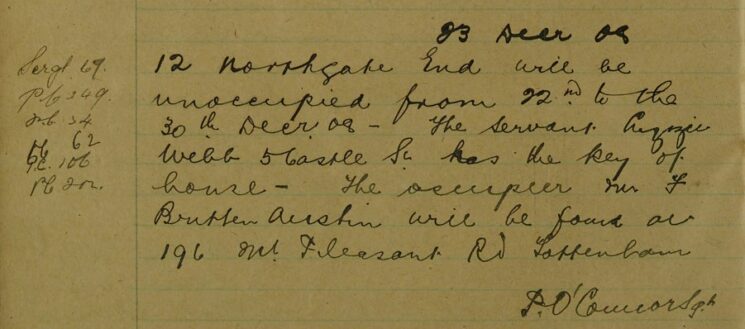 23 Decr 08
Sergt 69.
P.C 249.
12 Northgate End will be
unoccupied from 22nd to the
30th Decr 08 - The servant
62
P.C. 106
Webb 5 Castle St has the key of
house - The occupier Mr F
Brutten Austin will be found at
196 Mt Pleasant Rd Tottenham
P. O'Connor Sgt